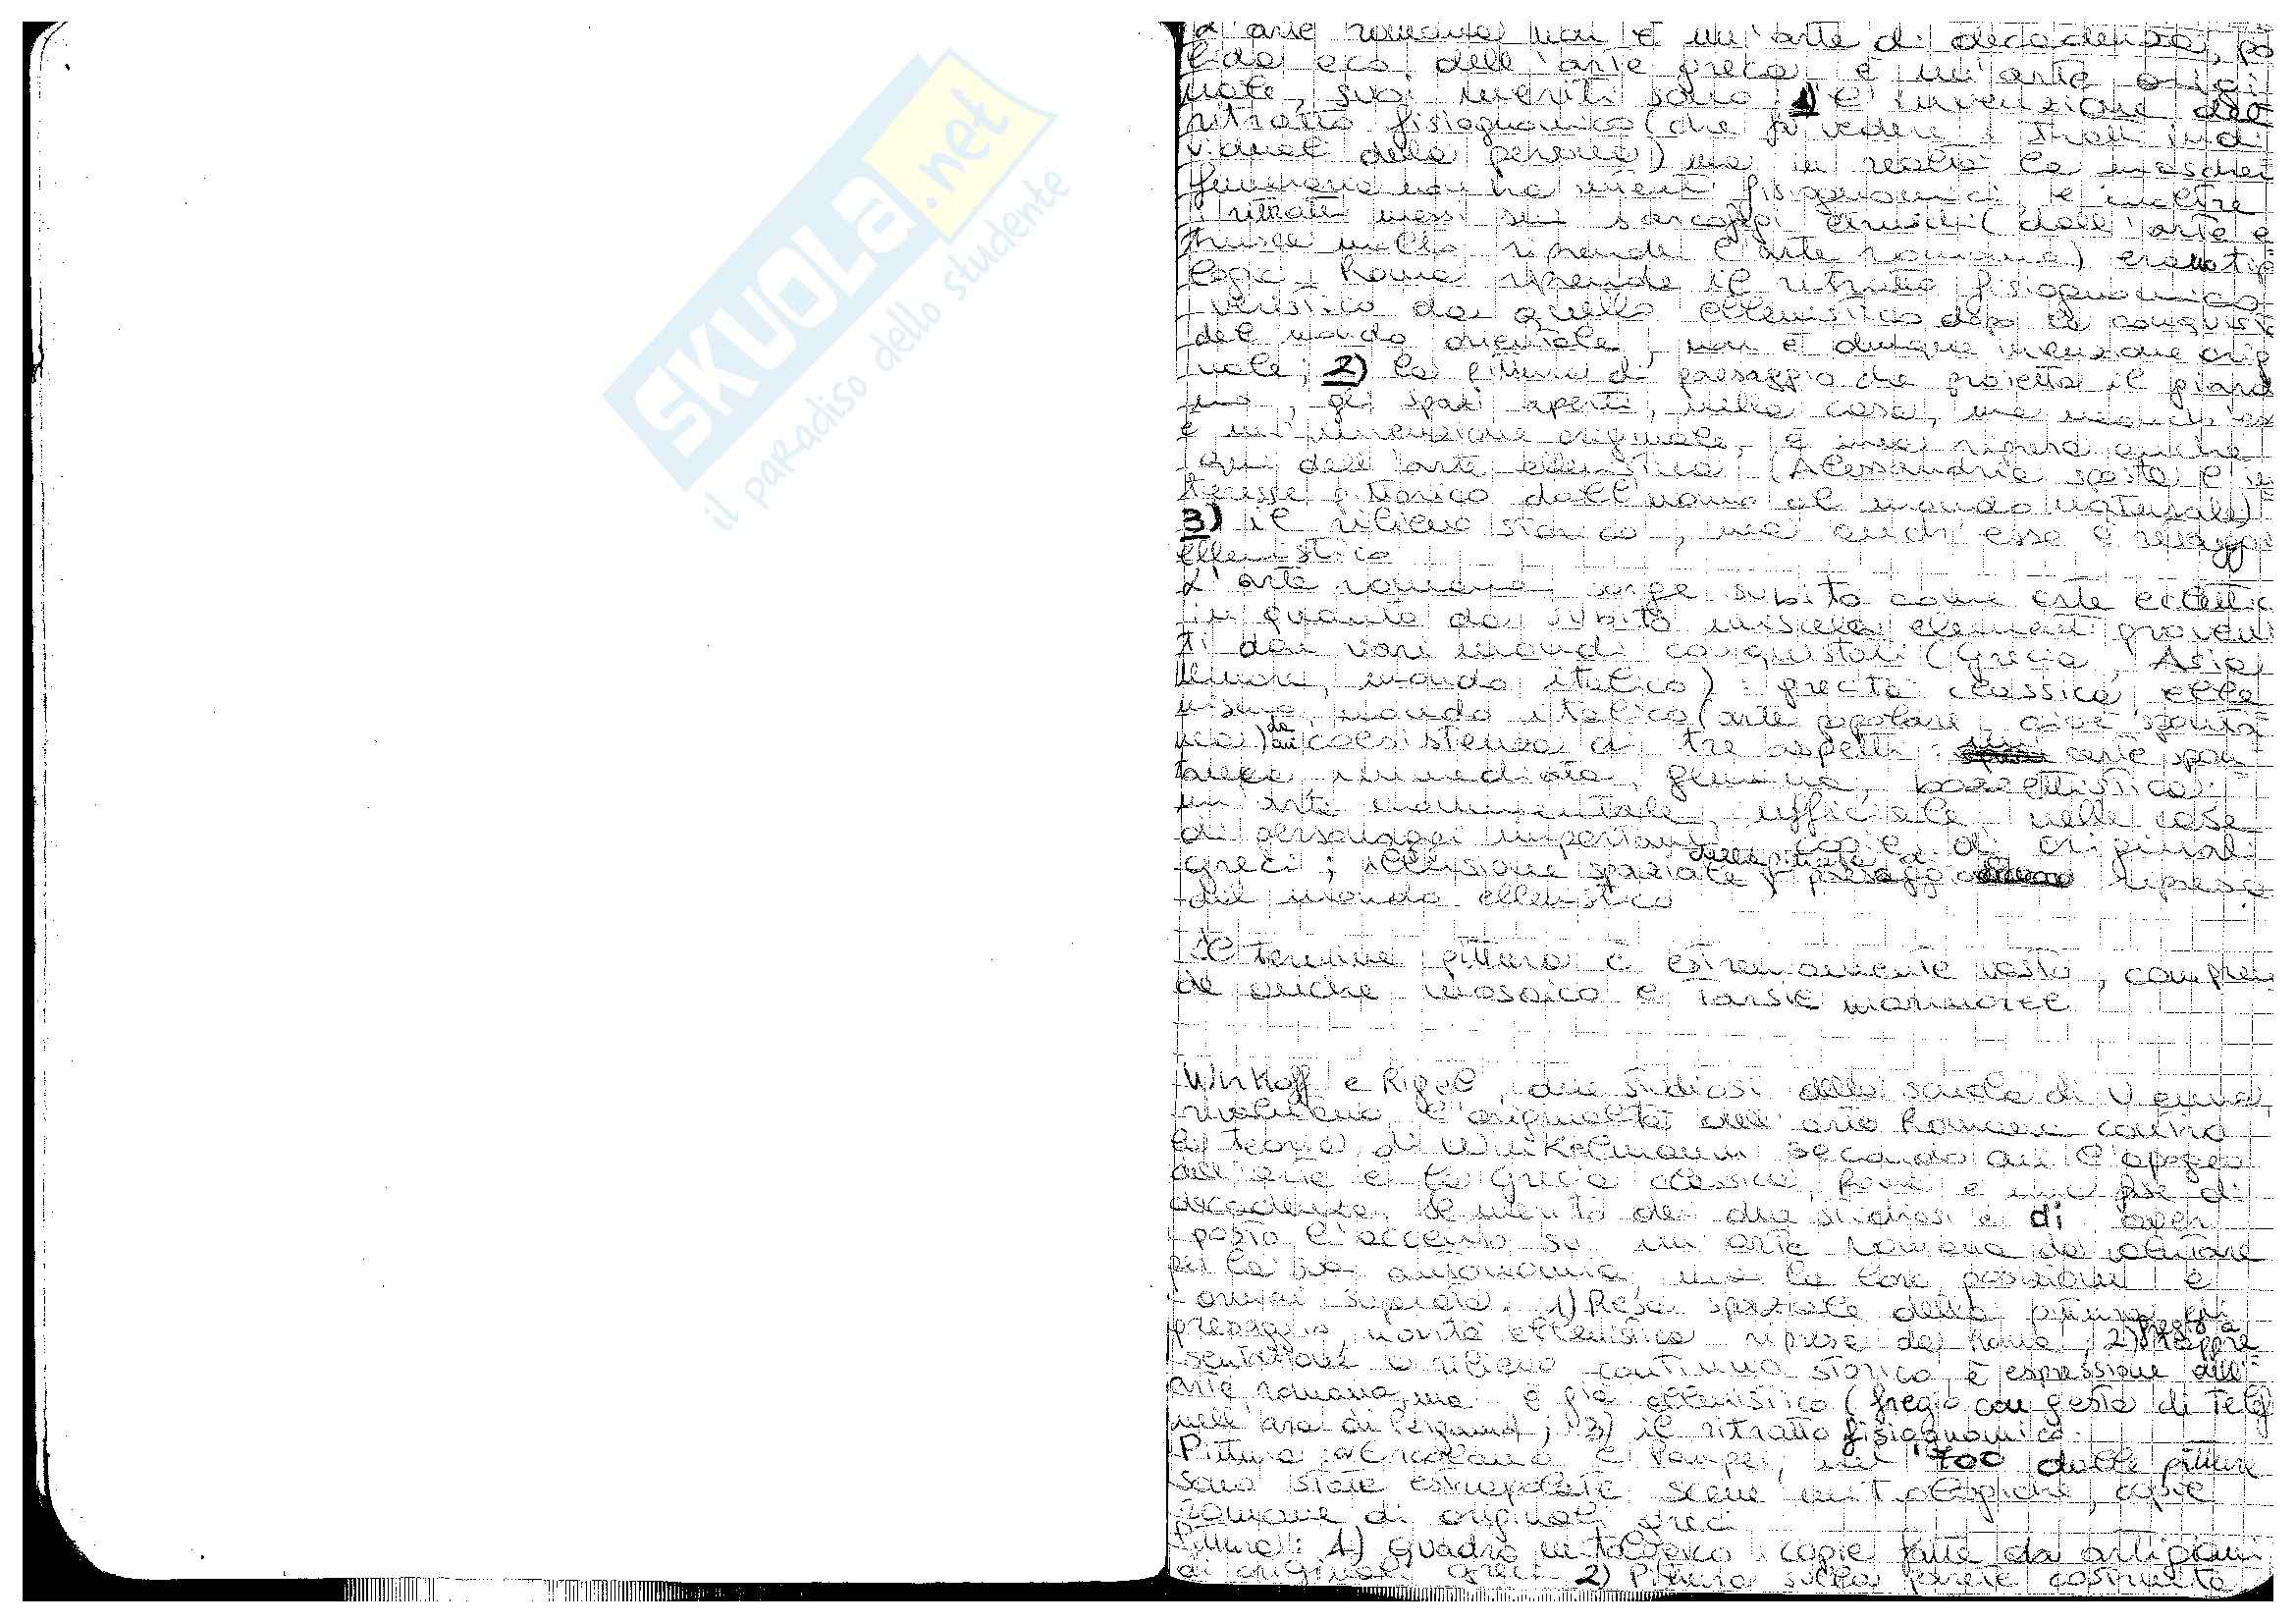 SKUOLA.net
il paradiso dello studente
L'arte romana non è un'arte di decadenza, pal
lida eco dell'arte greca, è un'arte origi
nale, suoi meriti sono: 1) l'invenzione del
ritratto fisiognomico (che fa vedere i tratti indi
viduali della persona) ma in realtà la maschera
funeraria non ha intenti fisiognomici e inoltre
i ritratti messi sui sarcofagi etruschi (dall'arte e
trusca molto riprende l'arte romana) erano tipo
logici. Roma riprende il ritratto fisiognomico
veristico da quello ellenistico dopo la conquista
del mondo orientale, non è dunque invenzione origi
nale; 2) la pittura di paesaggio che proietta il giardi
no, gli spazi aperti, nella casa, ma
è un'invenzione originale, è una ripresa anche
qui dell'arte ellenistica (Alessandria sposta l'in
teresse pittorico dall'uomo al mondo naturale)
3) il rilievo storico, ma anch'esso è retaggio
ellenistico
L'arte romana sorge subito come arte eclettica
in quanto da subito miscela elementi provenien
ti dai vari mondi conquistati (Grecia, Asia
Minore, mondo italico): grecità classica, elle
nismo, mondo italico (arte popolare, cioè sponta
nea) da cui coesistenza di tre aspetti: arte spon
tanea, immediata, genuina, bozzettistica;
un'arte monumentale, ufficiale nelle case
di personaggi importanti, copie di originali
greci; illusione spaziale nella pittura di paesaggio ripresa
dal mondo ellenistico
Il termine pittura è estremamente vasto, compren
de anche mosaico e tarsie marmoree
Winkoff e Rigel, due studiosi della scuola di Vienna,
rivalutano l'originalità dell'arte Romana contro
la teoria di Winkelmann secondo cui l'apogeo
dell'arte è la Grecia classica, Roma è una fase di
decadenza. Il merito dei due studiosi è di aver
posto l'accento su un'arte romana da valutare
per la sua autonomia, ma la loro posizione è
ormai superata. 1) Resa spaziale della pittura di
paesaggio, novità ellenistica ripresa da Roma; 2) rappre
sentazione a rilievo continuo storico, è espressione dell'
arte romana, ma è già ellenistico (fregio con gesta di Telefo
nell'ara di Pergamo); 3) il ritratto fisiognomico.
Pittura: a Ercolano e Pompei, nel '700 dalle pitture
sono state estrapolate scene mitologiche, copie
romane di originali greci
Pittura: 1) quadro mitologico: copie fatte da artigiani
di originali greci 2) Pittura sulla parete costruita